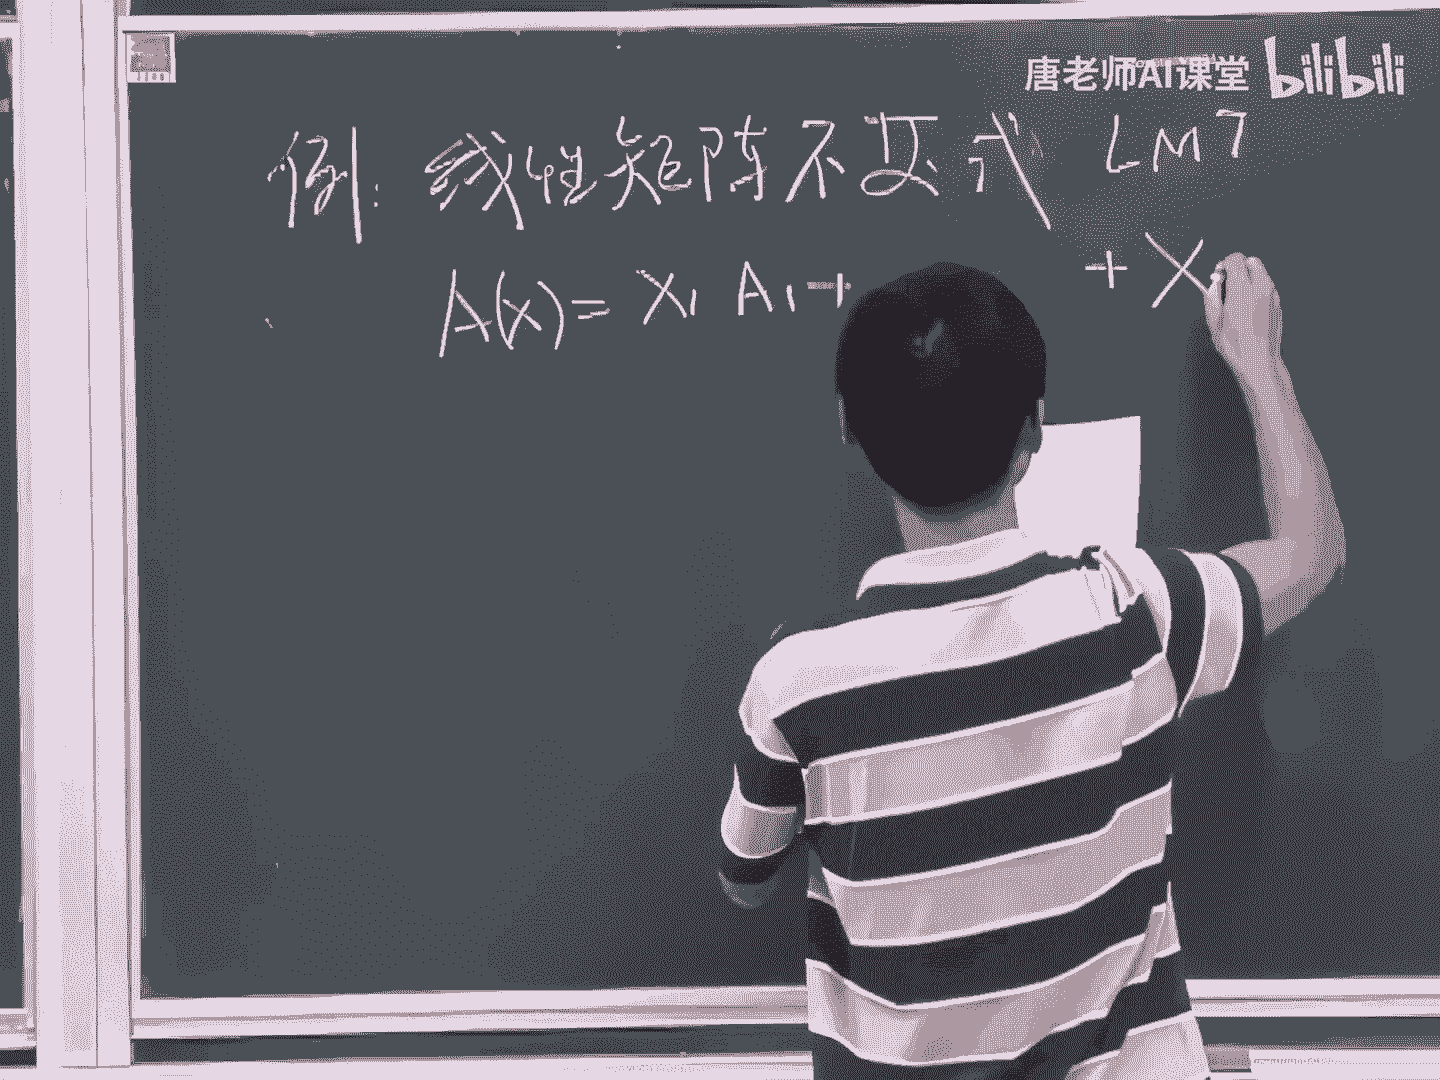 唐老师AI课堂 bilibili
例: 线性矩阵不等式 LMI
A(x)= X₁ A₁ + + X